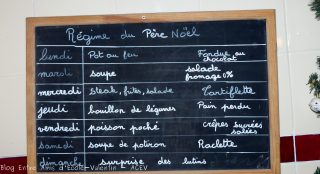 Régime du Père Noël
lundi Pot au feu Fondue au chocolat
mardi soupe salade fromage 0%
mercredi steak, frites, salade Tartiflette
jeudi bouillon de légumes Pain perdu
vendredi poisson poché crêpes sucrées salées
samedi soupe de potiron Raclette
dimanche surprise des lutins
Blog Entre Amis d'Ecole-Valentin ACEV